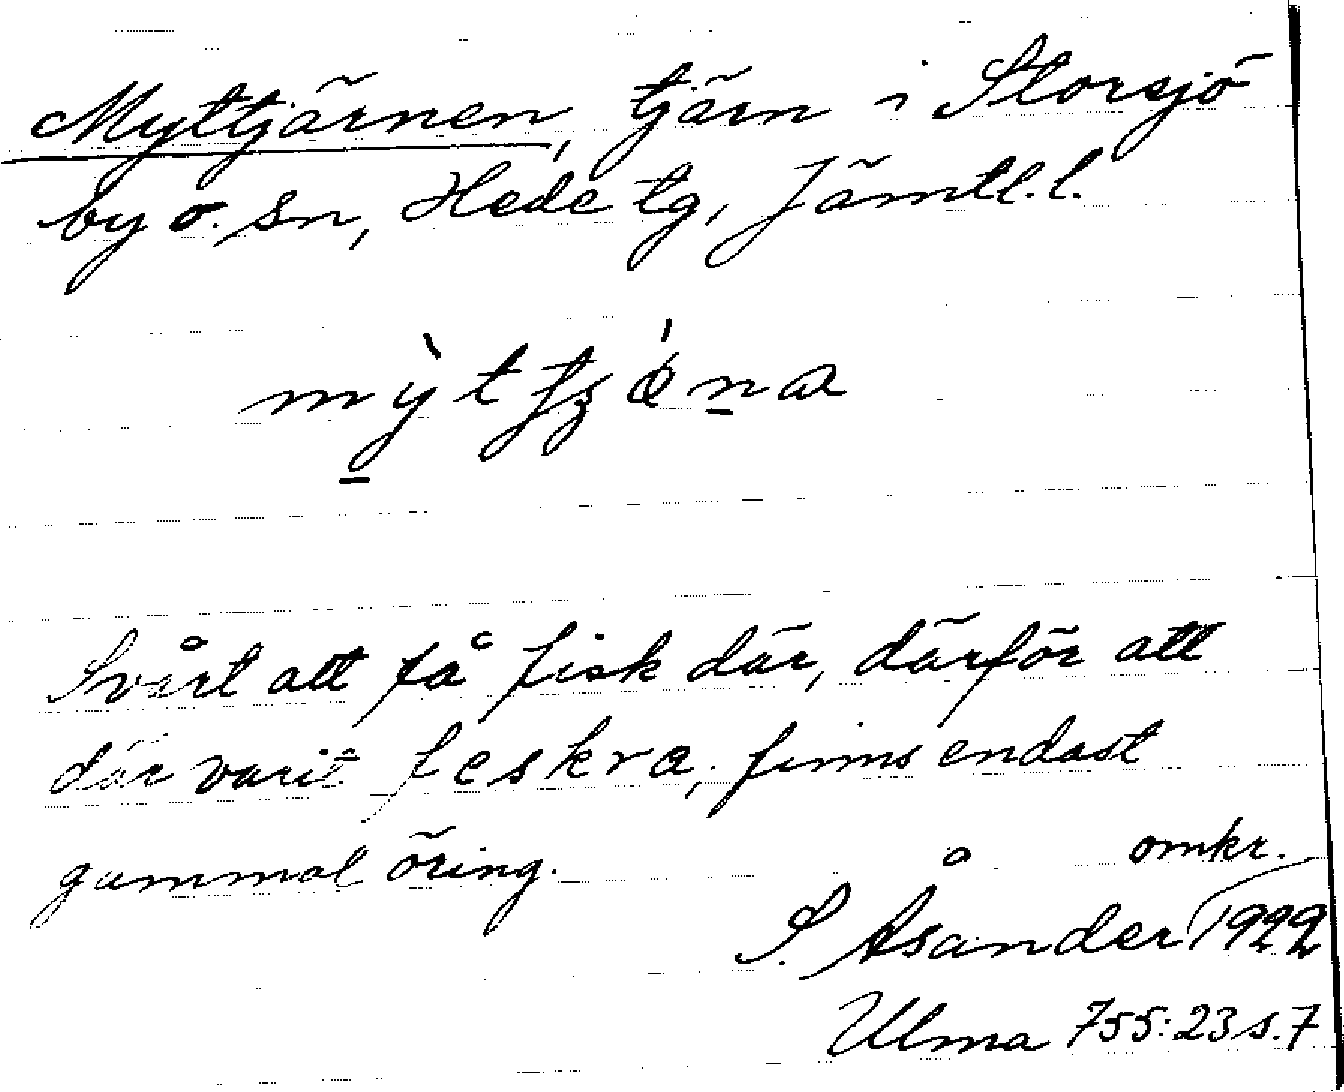 Myttjärnen, tjärn i Storsjö
by o. sn, Hede tg, Jämtl. l.
Svårt att få fisk där, därför att
där varit feskra, finns endast
gammal öring.
omkr.
S. Åsander 1922
Ulma 755:23 s. 7